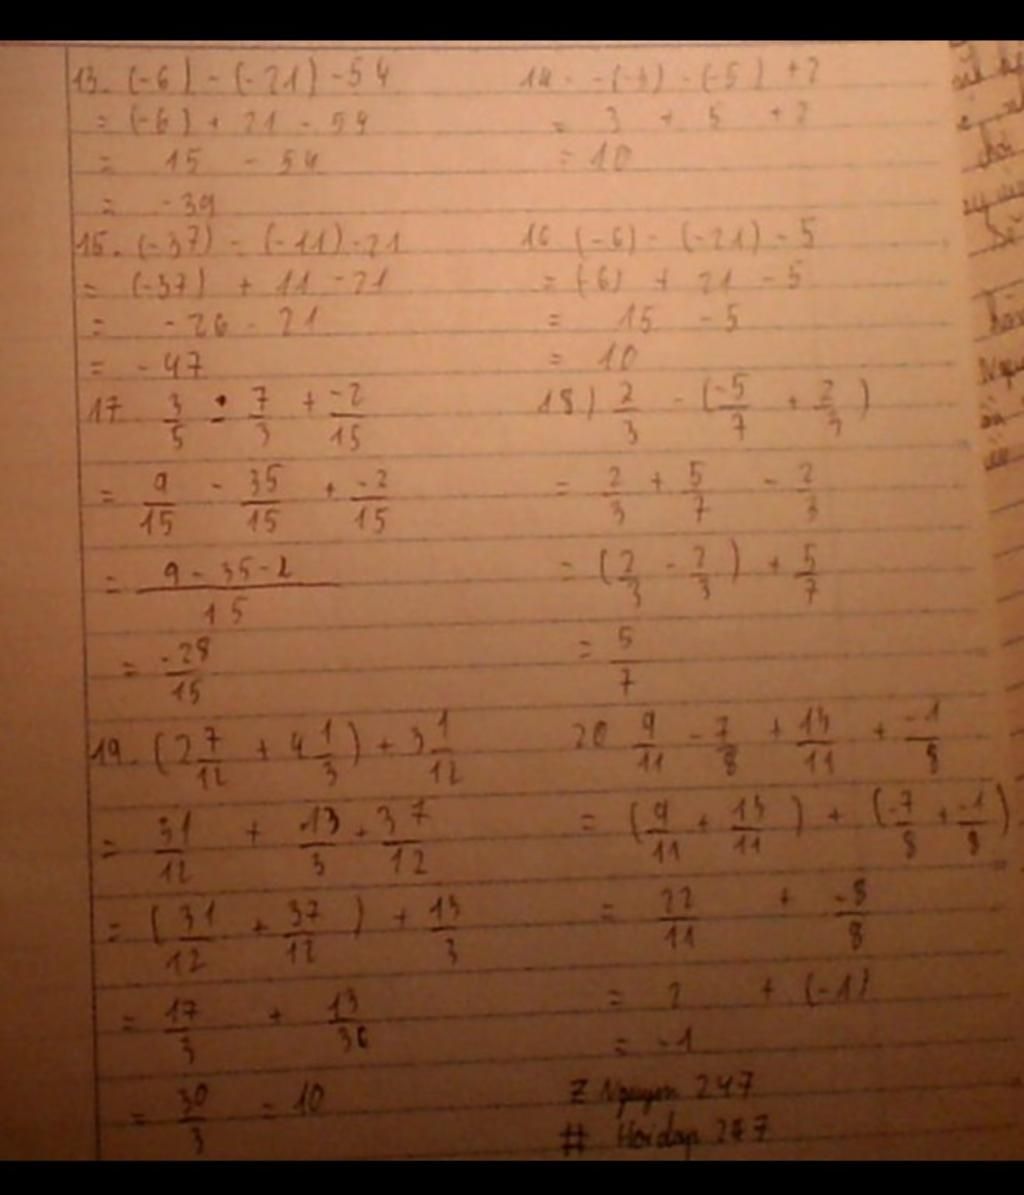 13. (-6) - (-21) - 54
= (-6) + 21 - 54
= 15 - 54
= -39
14. -(-3) - (-5) + 2
= 3 + 5 + 2
= 10
15. (-37) - (-11) - 21
= (-37) + 11 - 21
= -26 - 21
= -47
16 (-6) - (-21) - 5
= (-6) + 21 - 5
= 15 - 5
= 10
17 3/5 - 7/3 + -2/15
= 9/15 - 35/15 + -2/15
= 9 - 35 - 2/15
= -28/15
18) 2/3 - (-5/7 + 2/3)
= 2/3 + 5/7 - 2/3
= (2/3 - 2/3) + 5/7
= 5/7
19. (2 7/12 + 4 1/3) + 3 1/12
= 31/12 + 13/3 + 37/12
= (31/12 + 37/12) + 13/3
= 17/3 + 13/36
= 30/3 = 10
20 9/11 - 7/8 + 13/11 + -1/8
= (9/11 + 13/11) + (-7/8 + -1/8)
= 22/11 + -8/8
= 2 + (-1)
= -1
Z Nguyen 247
# Hoidap 247